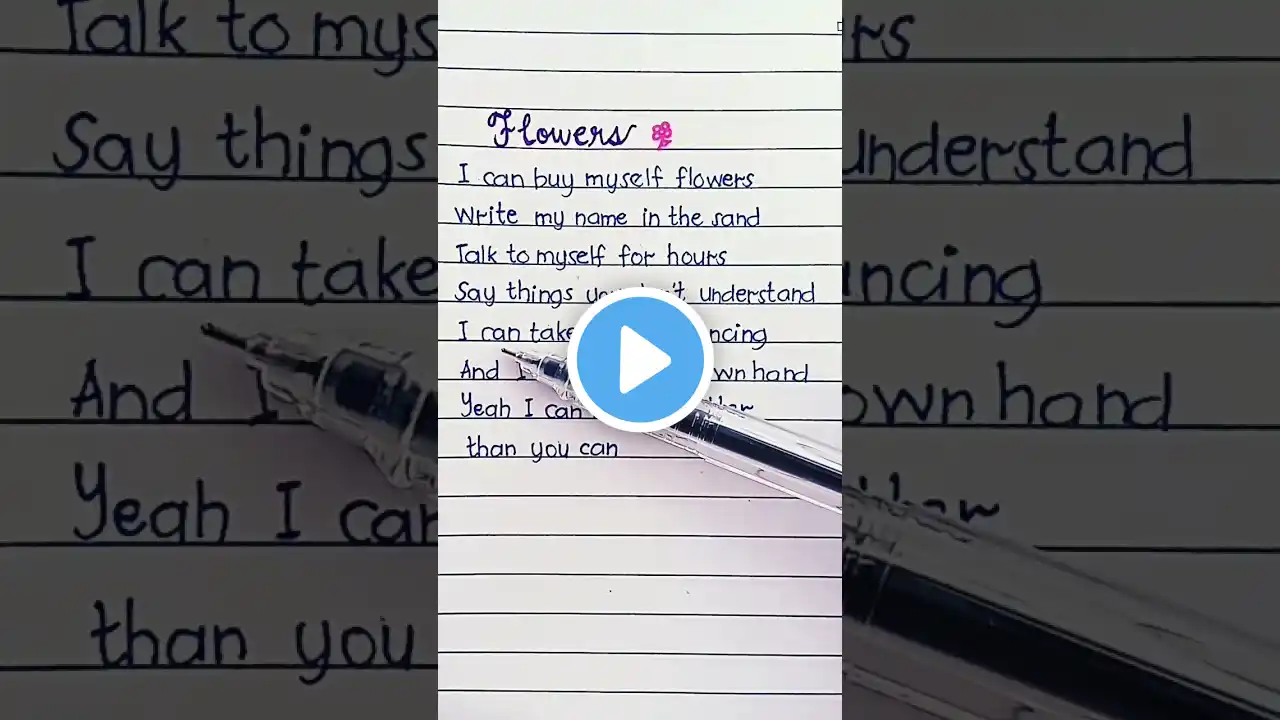 Flowers
I can buy myself flowers
Write my name in the sand
Talk to myself for hours
Say things understand
I can take ncing
And I own hand
Yeah I can
than you can